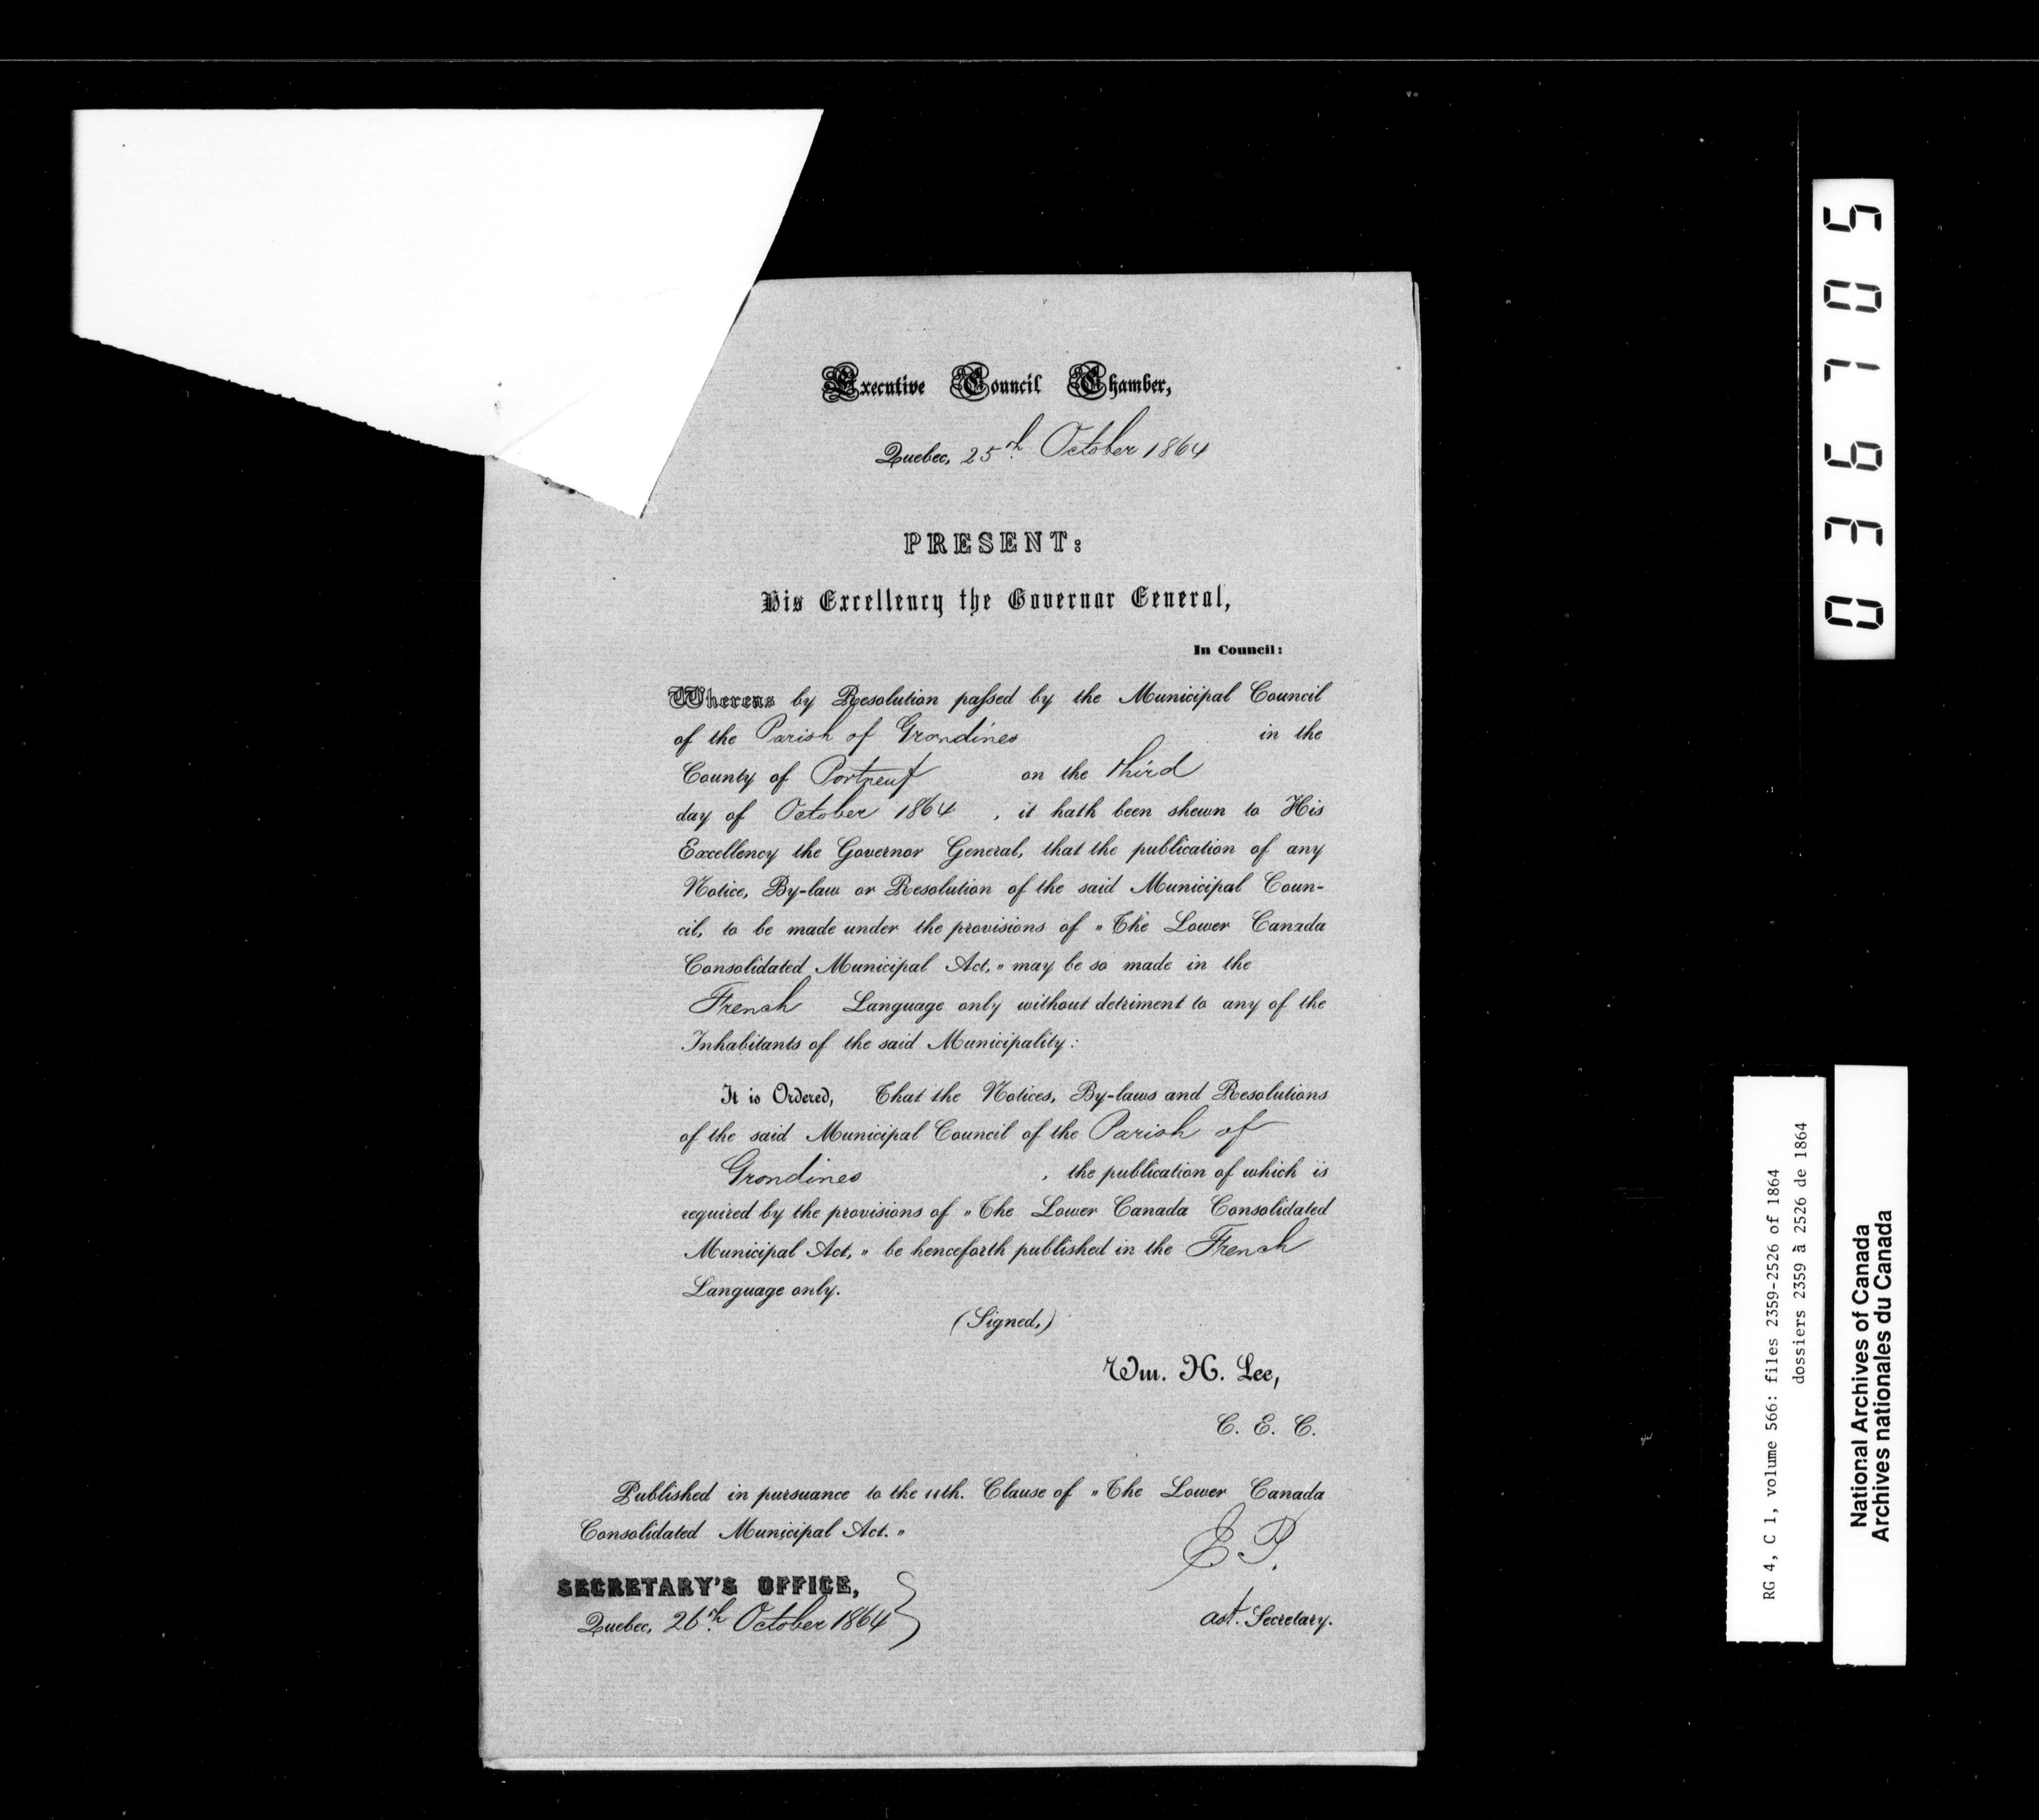 Executive Council Chamber,
Quebec, 25th October 1864
PRESENT:
His Excellency the Governor General,
In Council:
Whereas by Resolution passed by the Municipal Council
of the Parish of Grondines in the
County of Portneuf on the third
day of October 1864, it hath been shewn to His
Excellency the Governor General, that the publication of any
Notice, By-law or Resolution of the said Municipal Coun-
cil, to be made under the provisions of "The Lower Canada
Consolidated Municipal Act," may be so made in the
French Language only without detriment to any of the
Inhabitants of the said Municipality:
It is Ordered, That the Notices, By-laws and Resolutions
of the said Municipal Council of the Parish of
Grondines, the publication of which is
required by the provisions of "The Lower Canada Consolidated
Municipal Act," be henceforth published in the French
Language only.
(Signed,)
Wm. H. Lee,
C. E. C.
Published in pursuance to the 11th. Clause of "The Lower Canada
Consolidated Municipal Act."
E P.
SECRETARY'S OFFICE,
Quebec, 26th October 1864
Ast. Secretary.
036705
RG 4, C 1, volume 566: files 2359-2526 of 1864
dossiers 2359 à 2526 de 1864
National Archives of Canada
Archives nationales du Canada